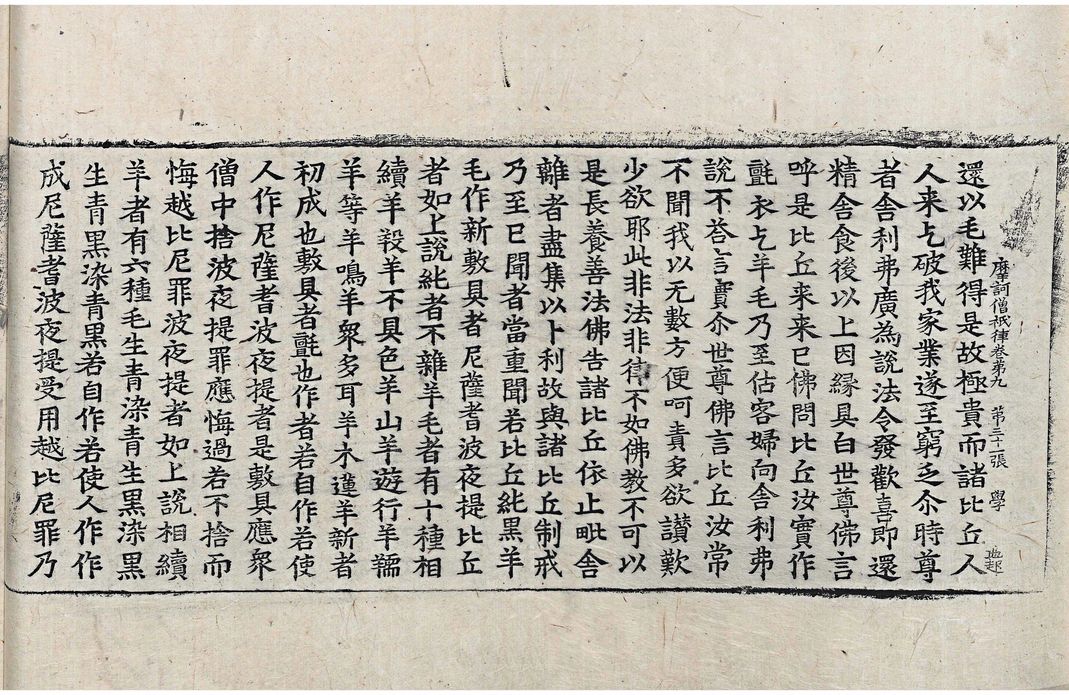 摩訶僧祇律卷第九 第三十一張 學
還以毛難得是故極貴而諸比丘人
人来乞破我家業遂至窮乏尒時尊
者舍利弗廣為說法令發歡喜即還
精舍食後以上因緣具白世尊佛言
呼是比丘来来已佛問比丘汝實作
氈衣乞羊毛乃至估客婦向舍利弗
說不荅言實尒世尊佛言比丘汝常
不聞我以无數方便呵責多欲讃歎
少欲耶此非法非律不如佛教不可以
是長養善法佛告諸比丘依止毗舍
離者盡集以十利故與諸比丘制戒
乃至已聞者當重聞若比丘純黑羊
毛作新敷具者尼薩耆波夜提比丘
者如上說純者不雜羊毛者有十種相
續羊羖羊不具色羊山羊遊行羊羺
羊等羊鳴羊衆多耳羊木蓮羊新者
初成也敷具者氈也作者若自作若使
人作尼薩耆波夜提者是敷具應衆
僧中捨波夜提罪應悔過若不捨而
悔越比尼罪波夜提者如上說相續
羊者有六種毛生青染青生黑染黑
生青黑染青黑若自作若使人作作
成尼薩耆波夜提受用越比尼罪乃